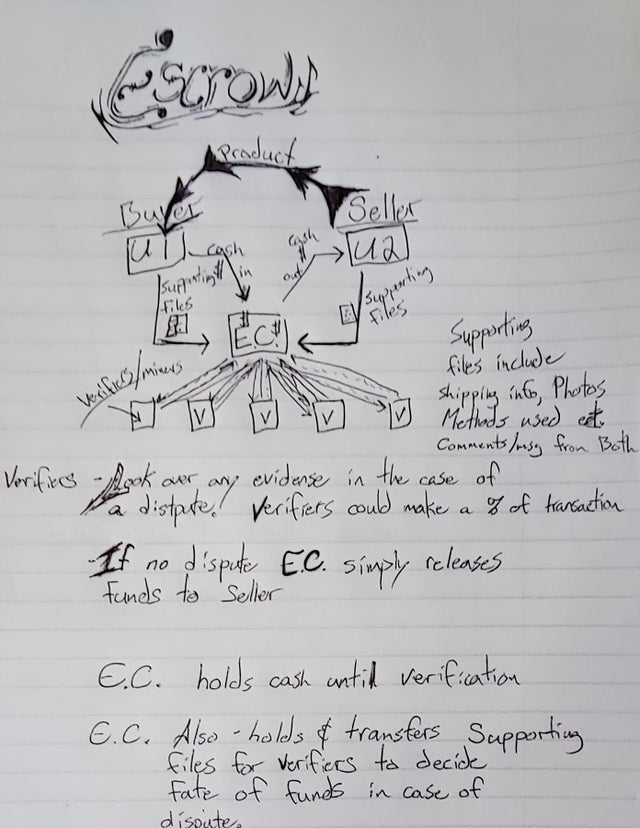 Escrow
Product
Buyer
Seller
U1
U2
cash
$
in
cash
$
out
Supporting
files
Supporting
files
E.C.
Verifiers/miners
V
V
V
V
Supporting
files include
shipping info, Photos
Methods used ect.
Comments/msg from Both
Verifiers - Look over any evidense in the case of
a distpute! Verifiers could make a % of transaction
- If no dispute E.C. simply releases
funds to Seller
E.C. holds cash until verification
E.C. Also - holds & transfers Supporting
files for verifiers to decide
fate of funds in case of
dispute.